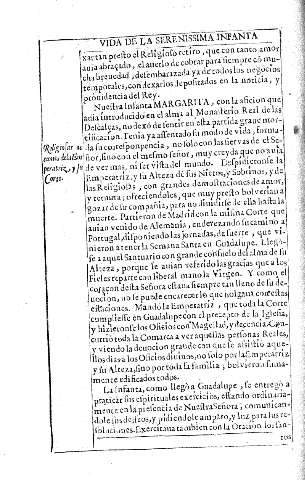 VIDA DE LA SERENISSIMA INFANTA
xar tan presto el Religioso retiro, que con tanto amor
auia abraçado, el anelo de cobrar para siempre có mu-
cha breuedad, desembarazada ya de todos los negocios
temporales, con dexarlos depositados en la noticia, y
prouidencia del Rey.
Nuestra Infanta MARGARITA, con la aficion que
auia introducido en el alma al Monasterio Real de las
Descalças, no dexó de sentir en esta partida grane mor-
tificacion. Tenia ya assentado su modo de vida, forma-
da su correspondencia, no solo con las sieruas del Se-
ñor, sino con el mesmo señor, muy creyda que no auia
de ver mas, ni ser vista del mundo. Despidieronse la
Emperatriz, y su Alteza de sus Nietos, y Sobrinos, y de
las Religiosas, con grandes demostraciones de amor,
y ternura, ofreciendoles, que muy presto boluerian a
gozar de su compañia, para no diuidirse de ella hasta la
muerte. Partieron de Madrid con la misma Corte que
auian venido de Alemania, enderezando su camino a
Portugal, disponiendo las jornadas, de suerte, que vi-
nieron a tener la Semana Santa en Guadalupe. Llegá-
se a aquel Santuario con grande consuelo del alma de su
Alteza, porque le auian referido las gracias que a los
Fieles reparte can liberal mano la Virgen. Y como el
coraçon desta Señora estaua siempre tan lleno de su de-
uocion, no se puede encarecer lo que
estaciones. Mandó la Emperatriz, que toda la Corte
cumpliesse en Guadalupe con el precepto de la Iglesia,
y hizieronse los Oficios con Magestad, y decencia. Con-
currió toda la Comarca a ver aquellas personas Reales,
y viendo la deuocion grande con que se assistio aque-
llos dias a los Oficios diuinos, no solo por la Emperatriz
y su Alteza, sino por toda la familia, boluieron suma-
mente edificados todos.
La Infanta, como llegó a Guadalupe, se entregó a
praticar sus espirituales exercicios, estando ordinaria-
mente en la presencia de Nuestra Señora, comunican-
dole sus desseos, y pidiendole amparo, y luz para sus re-
soluciones. Exercitaua tambien con la Oracion los san-
tos
Religiosas
Corte.